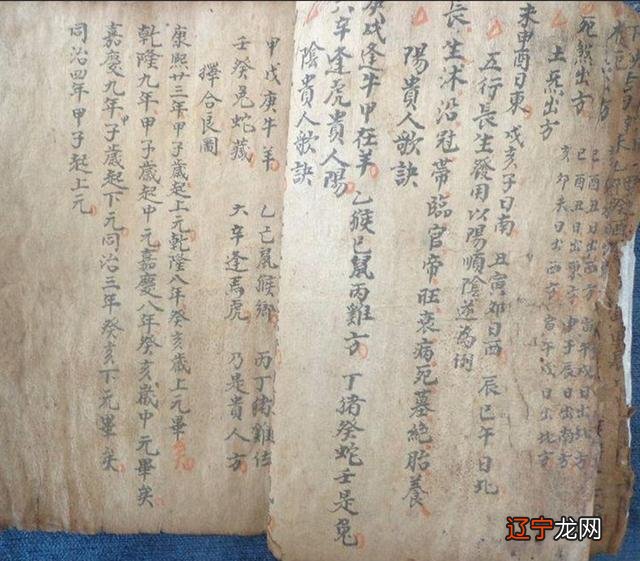 死煞出方
土煞出方
亥卯未日出西方 寅午戌日出北方
未申酉日東 戌亥子日南 丑寅卯日西 辰巳午日北
五行長生發用以陽順陰逆為例
長生沐沿冠帶臨官帝旺衰病死墓絕胎養
陽貴人歌訣
庚戌逢牛甲在羊 乙猴己鼠丙雞方 丁猪癸蛇壬是兔
六辛逢虎貴人陽
陰貴人歌訣
甲戊庚牛羊 乙己鼠猴鄉 丙丁猪雞位
壬癸兔蛇藏 六辛逢馬虎 乃是貴人方
擇合良圖
康熙廿三年甲子歲起上元乾隆八年癸亥歲上元畢
乾隆九年甲子歲起中元嘉慶八年癸亥歲中元畢矣
嘉慶九年子歲起下元同治三年癸亥下元畢矣
同治四年甲子起上元
辽宁龙网